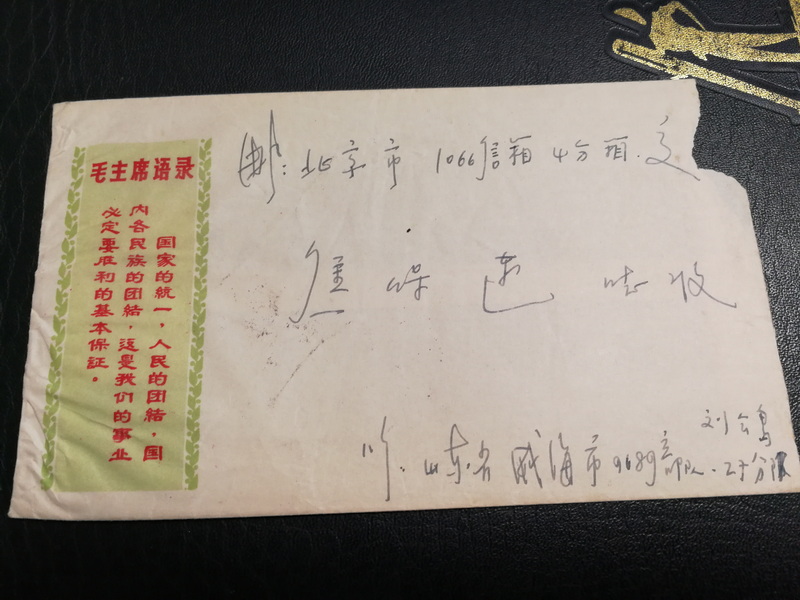 毛主席语录
国家的统一，人民的团结，国
内各民族的团结，这是我们的事业
必定要胜利的基本保证。
北京市 1066信箱 4分箱.交
焦保 收
刘
山东省威海市9689部队.27分队